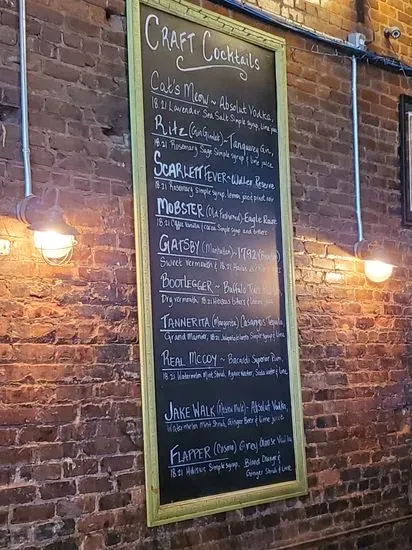 Craft Cocktails
Cat's Meow ~ Absolut Vodka,
18.21 Lavender Sea Salt Simple syrup, lime juice
Ritz (Gin Gimlet) ~ Tanqueray Gin,
18.21 Rosemary Sage Simple syrup & lime juice
Scarlett Fever ~ Weller Reserve
18.21 Rosemary simple syrup, lemon juice,
Mobster (Old Fashioned) ~ Eagle Rare
18.21 Coffee Vanilla, cocoa Simple syrup and bitters
Gatsby (Manhattan) ~ 1792
Sweet vermouth & 18.21
Bootlegger ~ Buffalo
Dry vermouth, 18.21 Hibiscus bitters &
Tannerita (Margarita) Casamigos Tequila,
Grand Marnier, 18.21 Jalapeño Simple syrup & lime
Real McCoy ~ Bacardi Superior Rum,
18.21 Watermelon Mint Shrub, Agave Nectar, Soda water & lime
Jake Walk (Moscow Mule) ~ Absolut Vodka,
Watermelon Mint Shrub, Ginger Beer & lime juice
Flapper (Cosmo) Grey Goose Vodka
18.21 Hibiscus Simple syrup, Blood Orange &
Ginger Shrub & lime